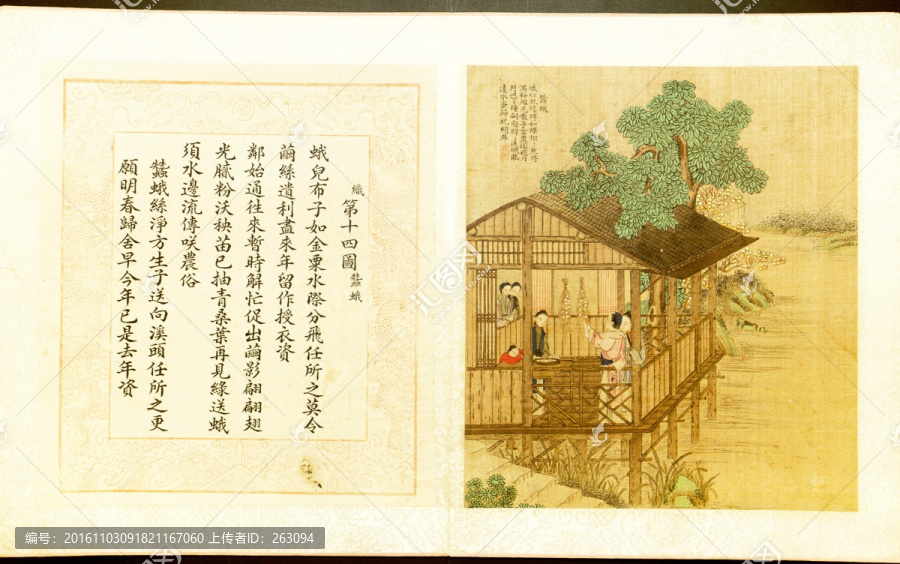 織 第十四圖 蠶蛾
蛾兒布子如金粟水際分飛任所之莫令
繭絲遺利盡來年留作授衣資
鄰始通往來暫時解忙促出繭影翩翩翅
光膩粉沃秧苗已抽青桑葉再見緣送蛾
須水邊流傳咲農俗
蠶蛾絲淨方生子送向溪頭任所之更
願明春歸舍早今年已是去年資
蠶蛾
遠水蚤歸屬明年
编号：20161103091821167060 上传者ID：263094